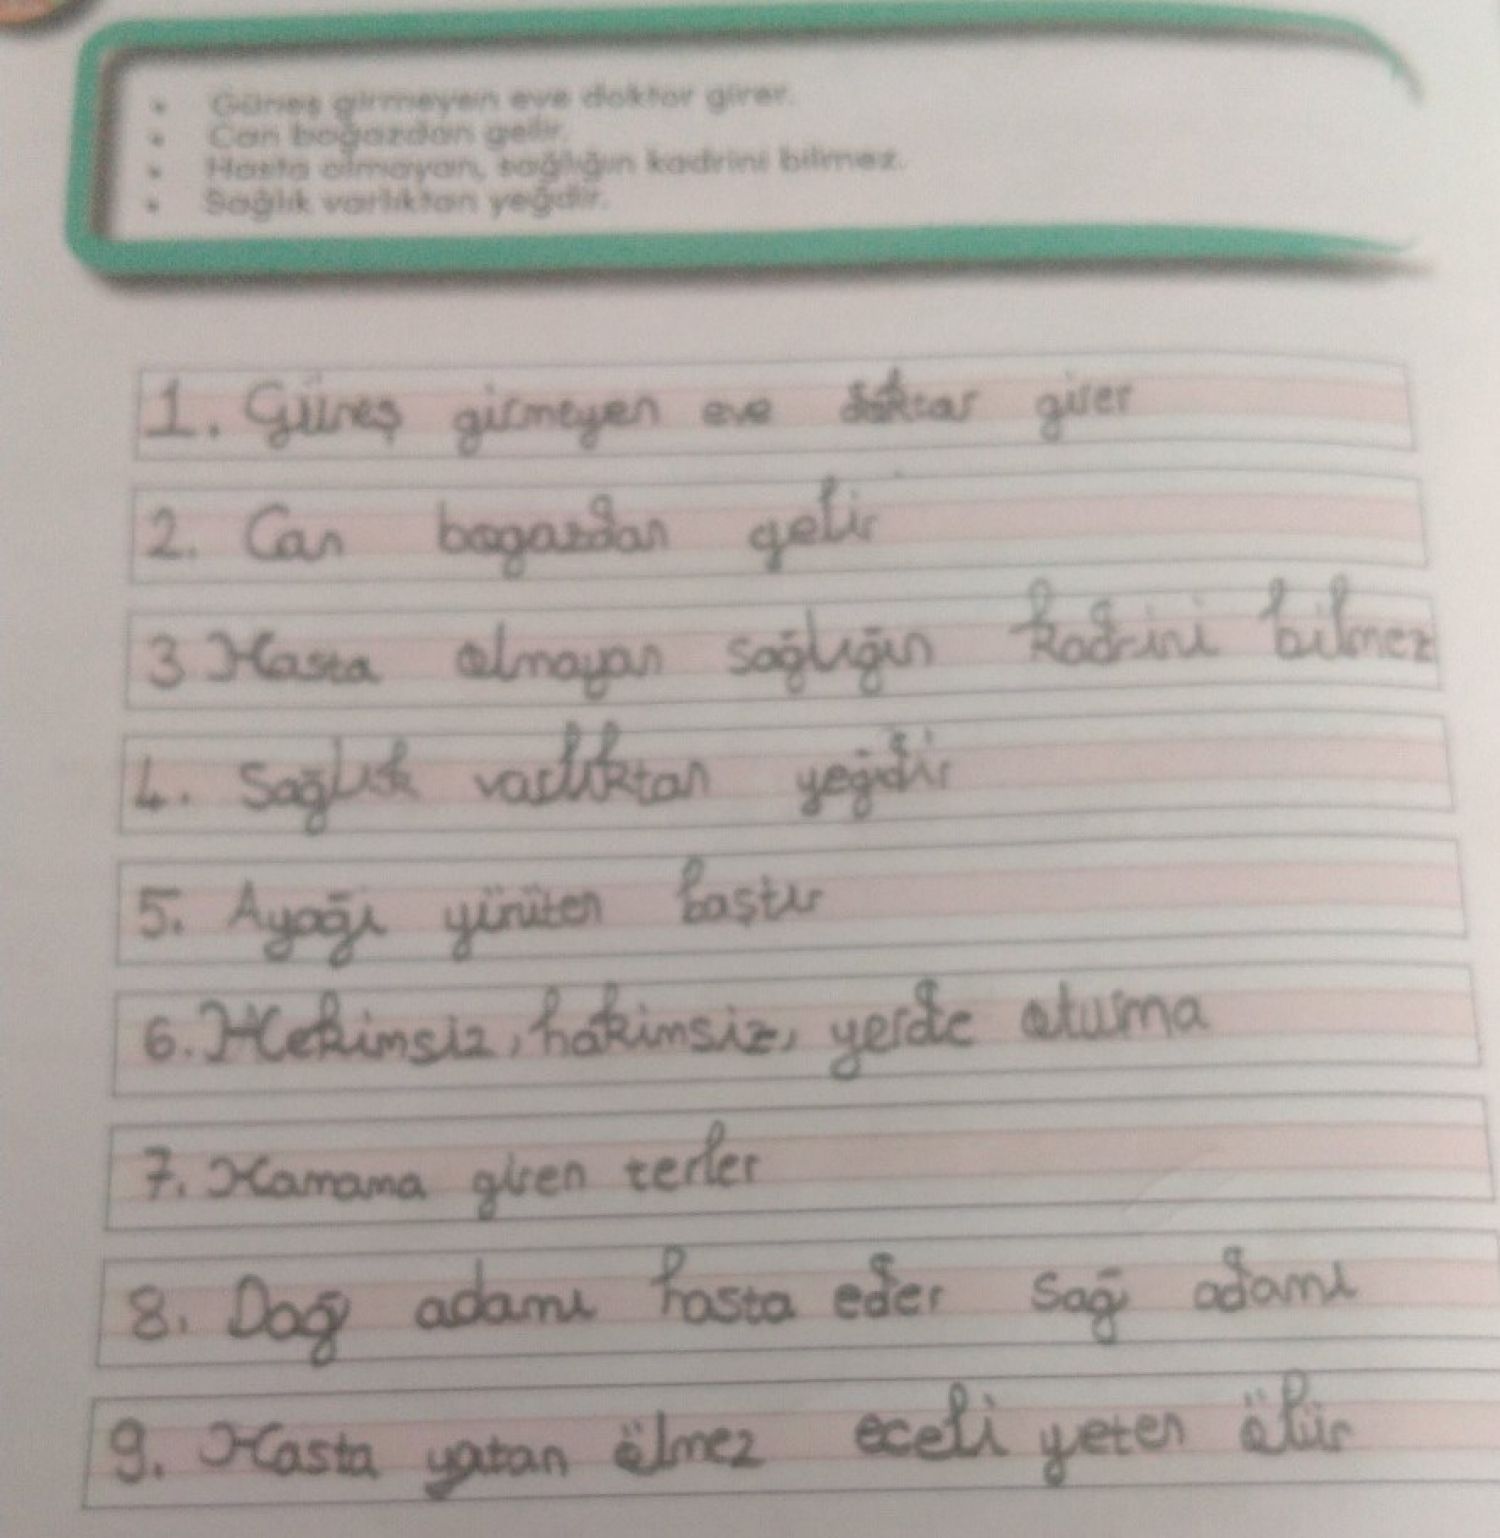 Güneş girmeyen eve doktor girer.
Can boğazdan gelir.
Hasta olmayan, sağlığın kadrini bilmez.
Sağlık varlıktan yeğdir.
1. Güneş girmeyen eve doktor girer
2. Can bogazdan gelir
3 Hasta olmayan sağlığın kadrini bilmez
4. Sağlık varlıktan yeğidir
5. Ayağı yürüten baştır
6. Hekimsiz, hakimsiz, yerde oturma
7. Hamama giren terler
8. Dağ adamı hasta eder sağ adamı
9. Hasta yatan ölmez eceli yeten ölür